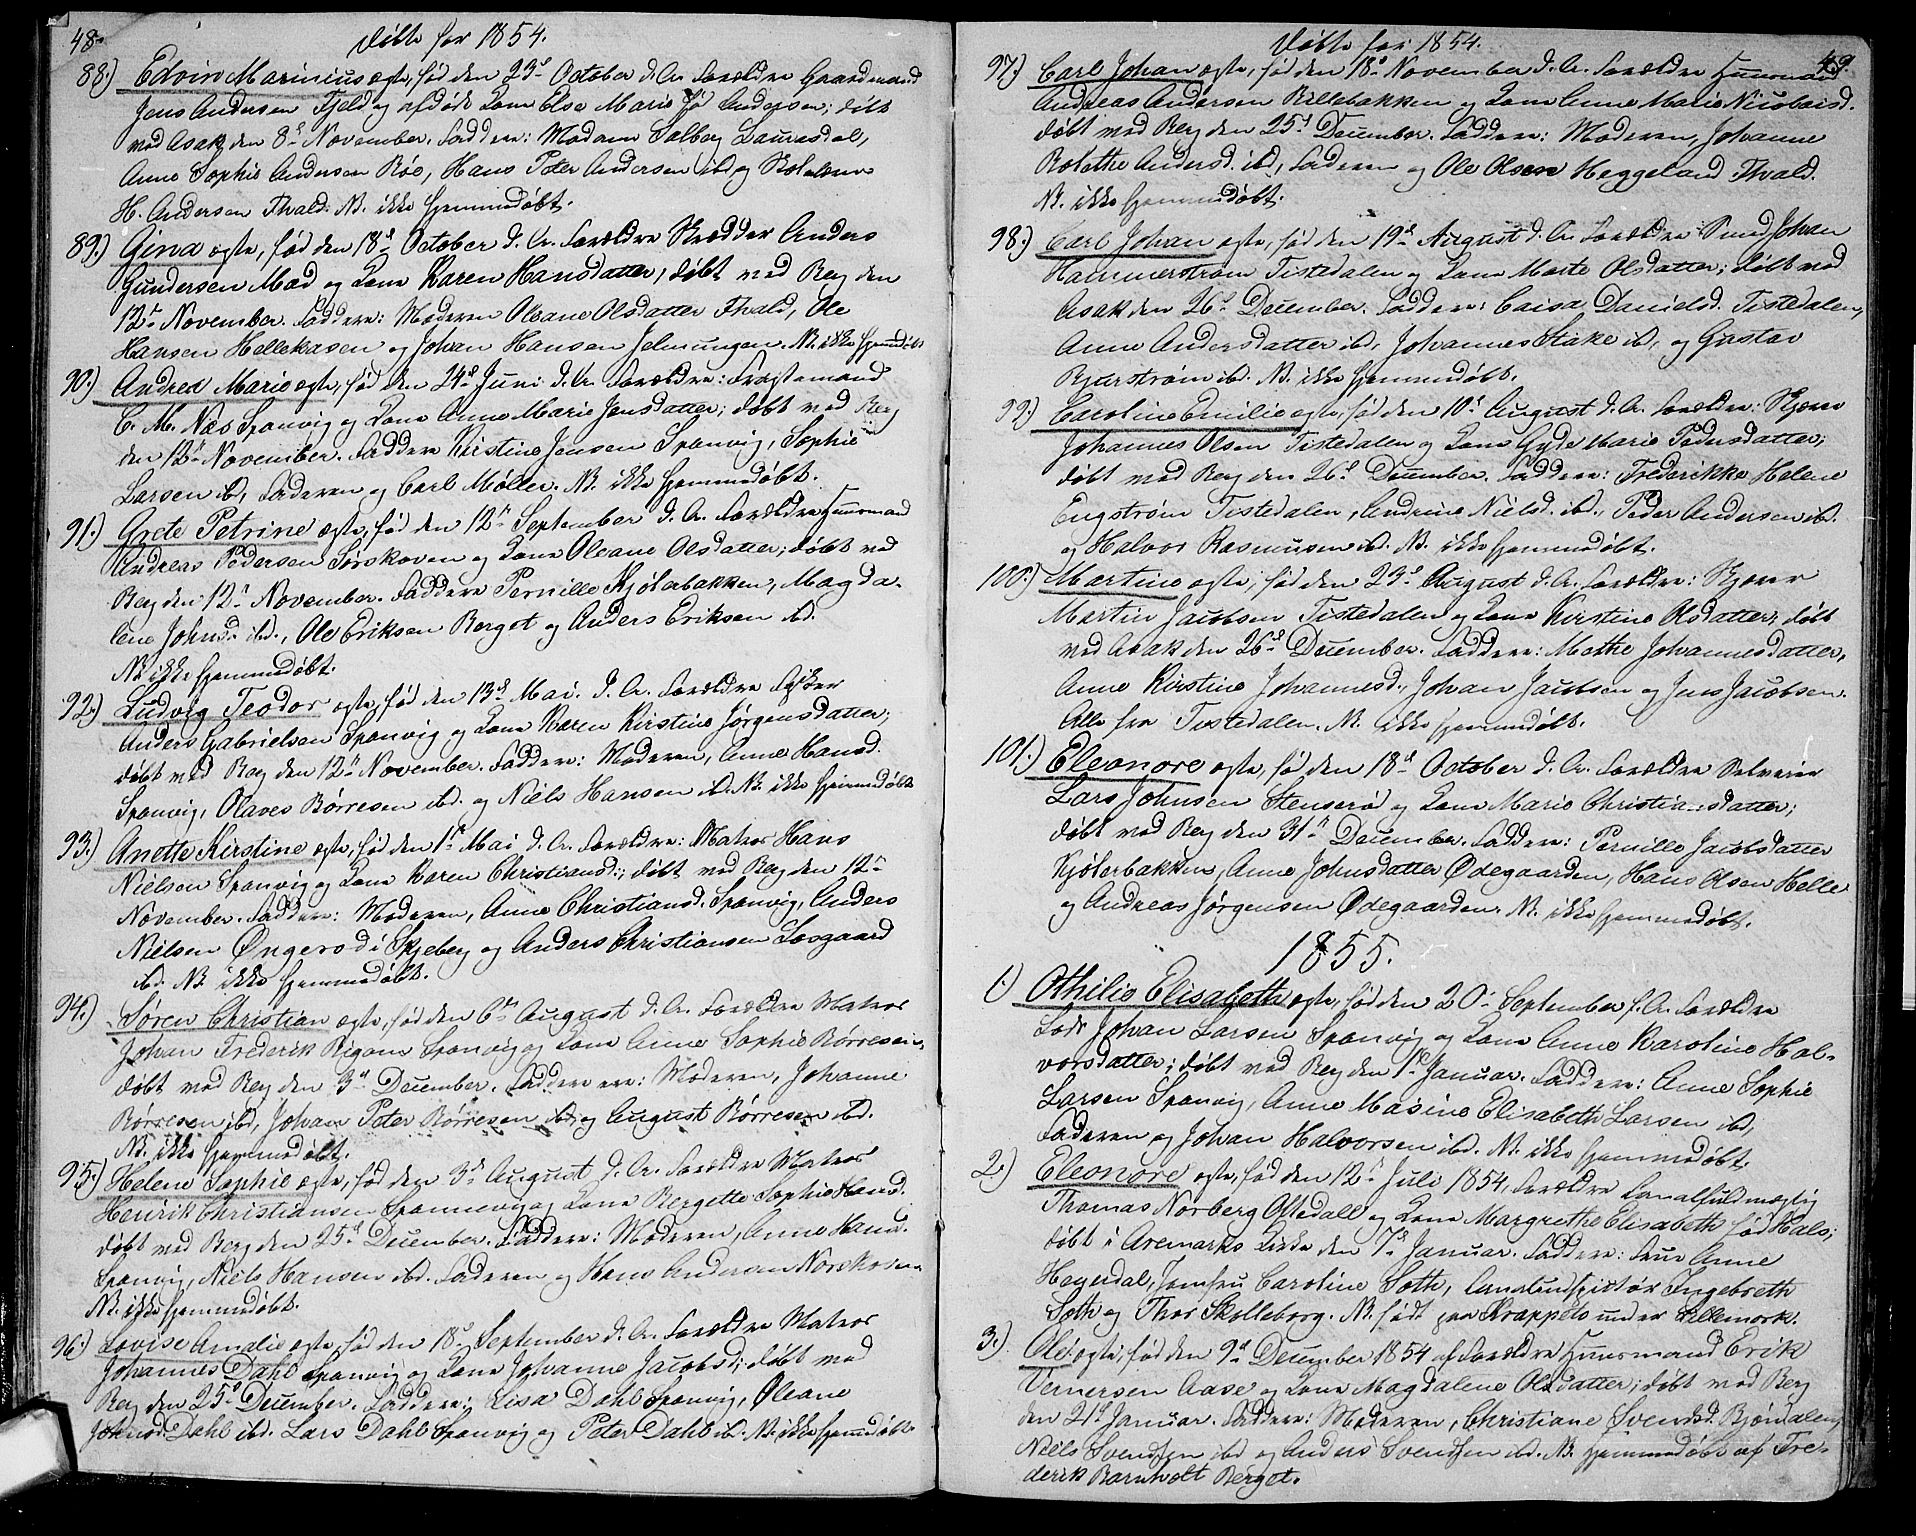 48.
Døbte for 1854.
88.) Edvin Marinius ægte, fød den 23de October d. A. Forældre Gaardmand
Jens Andersen Fjeld og afdøde Kone Else Marie fød Andersen; døbt
ved Asak den 8de November. Faddere: Madam Solberg
Anne Sophie Andersen Røe, Hans Peter Andersen ibd og Skolelærer
H. Andersen Thvald. NB. ikke hjemmedøbt.
89.) Gina ægte, fød den 18de October d. A. Forældre Skrædder Anders
Gundersen Mad og Kone Karen Hansdatter, døbt ved Berg den
12te November. Faddere: Moderen Oleane Olsdatter Thvald, Ole
Hansen Hellekasen og Johan Hansen Jelmungen. NB. ikke hjemdøbt
90.) Andrea Marie ægte, fød den 24de Juni d. A. Forældre: Fragtemand
C. M. Næs Sponvig og Kone Anne Marie Jensdatter; døbt ved Berg
den 12te November. Faddere Kirstine Jensen Sponvig, Sophie
Larsen ibd, Faderen og Carl Møller. NB. ikke hjemmedøbt.
91.) Grete Petrine ægte, fød den 12te September d. A. Forældre Huusmand
Andreas Pedersen Sørskoven og Kone Oleane Olsdatter; døbt ved
Berg den 12te November. Faddere Pernille Kjølerbakken, Magda-
lene Johnsd. ibd., Ole Eriksen Berget og Anders Eriksen ibd.
NB. ikke hjemmedøbt.
92.) Ludvig Teodor ægte, fød den 13de Mai d. A. Forældre Fisker
Anders Gabrielsen Sponvig og Kone Karen Kirstine Jørgensdatter;
døbt ved Berg den 12te November. Faddere: Moderen, Anne Hansd.
Sponvig, Olaves Børresen ibd. og Niels Hansen ibd. NB. ikke hjemmedøbt
93.) Anette Kirstine ægte, fød den 1ste Mai d. A. Forældre: Matros Hans
Nielsen Sponvig og Kone Karen Christiansd.; døbt ved Berg den 12te
November. Faddere: Moderen, Anne Christiansd. Sponvig, Anders
Nielsen Øngerød i Skjeberg og Anders Christiansen Sosgaard
ibd. NB. ikke hjemmedøbt.
94.) Søren Christian ægte, fød den 6te August d. A. Forældre Matros
Johan Frederik Sponvig og Kone Anne Sophie Børresen,
døbt ved Berg den 3de December. Faddere ere: Moderen, Johanne
Børresen ibd, Johan Peter Børresen ibd og August Børresen ibd.
NB. ikke hjemmedøbt.
95.) Helene Sophie ægte, fød den 3de August d. A. Forældre Matros
Henrik Christiansen Sponnevig og Kone Bergette Sophie Hansd.
døbt ved Berg den 25de December. Faddere: Moderen, Anne Hansd.
Sponvig, Niels Hansen ibd. Faderen og Hans Andersen Norskoven.
NB. ikke hjemmedøbt.
96.) Lovise Amalie ægte, fød den 18de September d. A. Forældre Matros
Johannes Dahl Sponvig og Kone Johanne Jacobsd; døbt ved
Berg den 25de December. Faddere: Lisa Dahl Sponvig, Oleane
Johnsd. Dahl ibd. Lars Dahl Sponvig og Peter Dahl ibd. NB. ikke hjemmedøbt.
49.
Døbte for 1854.
97.) Carl Johan ægte, fød den 18de November d. A. Forældre Huusmand
Andreas Andersen Billebakken og Kone Anne Marie Nicolaisd.
døbt ved Berg den 25de December. Faddere: Moderen, Johanne
Bolethe Andersd. ibd, Faderen og Ole Olsen Heggeland Thvald.
NB. ikke hjemmedøbt.
98.) Carl Johan ægte, fød den 19de August d. A. Forældre Smed Johan
Hammerstrøm Tistedalen og Kone Marte Olsdatter; døbt ved
Asak den 26de December. Faddere: Caisa Danielsd. Tistedalen,
Anne Andersdatter ibd, Johannes Stake ibd, og Gustav
Bjurstrøm ibd. NB. ikke hjemmedøbt.
99.) Caroline Emilie ægte, fød den 10de August d. A. Forældre: Skjærer
Johannes Olsen Tistedalen og Kone Gyde Marie Pedersdatter;
døbt ved Berg den 26de December. Faddere: Frederikke Helene
Engstrøm Tistedalen, Andrine Nielsd. ibd., Peder Andersen ibd.
og Halvor Rasmusen ibd. NB. ikke hjemmedøbt.
100.) Martine ægte, fød den 23de August d. A. Forældre: Skjærer
Martin Jacobsen Tistedalen og Kone Kirstine Olsdatter, døbt
ved Asak den 26de December. Faddere: Mathe Johannesdatter,
Anne Kirstine Johannesd., Johan Jacobsen og Jens Jacobsen.
Alle fra Tistedalen. NB. ikke hjemmedøbt.
101.) Eleonore ægte, fød den 18de October d. A. Forældre Selveier
Lars Johnsen Stenserød og Kone Marie Christiansdatter;
døbt ved Berg den 31te December. Faddere: Pernille Jacobsdatter
Kjølerbakken, Anne Johnsdatter Ødegaarden, Hans Olsen Helle
og Andreas Jørgensen Ødegaarden. NB. ikke hjemmedøbt.
1855.
1.) Othilie Elisabeth ægte, fød den 20de September f. A. Forældre
Lods Johan Larsen Sponvig og Kone Anne Karoline Hal-
vorsdatter; døbt ved Berg den 1ste Januar. Faddere: Anne Sophie
Larsen Sponvig, Anne Masine Elisabeth Larsen ibd,
Faderen og Johan Halvorsen ibd. NB. ikke hjemmedøbt.
2.) Eleonore ægte, fød den 12te Juli 1854, Forældre
Thomas Norberg Oltedall og Kone Margrethe Elisabeth født Hals;
døbt i Aremarks Kirke den 7de Januar. Faddere: Frue Anne
Heyerdal, Jomfru Caroline Soth, Ingebreth
Soth og Thor Skolleborg. NB. født paa Krappeto under Lillemork.
3.) Ole ægte, fød den 9de December 1854 af Forældre Huusmand Erik
Vernersen Aase og Kone Magdalene Olsdatter; døbt ved Berg
den 21de Januar. Faddere: Moderen, Christiane Svendsd. Bjørdalen,
Niels Svendsen ibd og Anders Svendsen ibd. NB. hjemmedøbt af Fre-
derik Barnholt Berget.